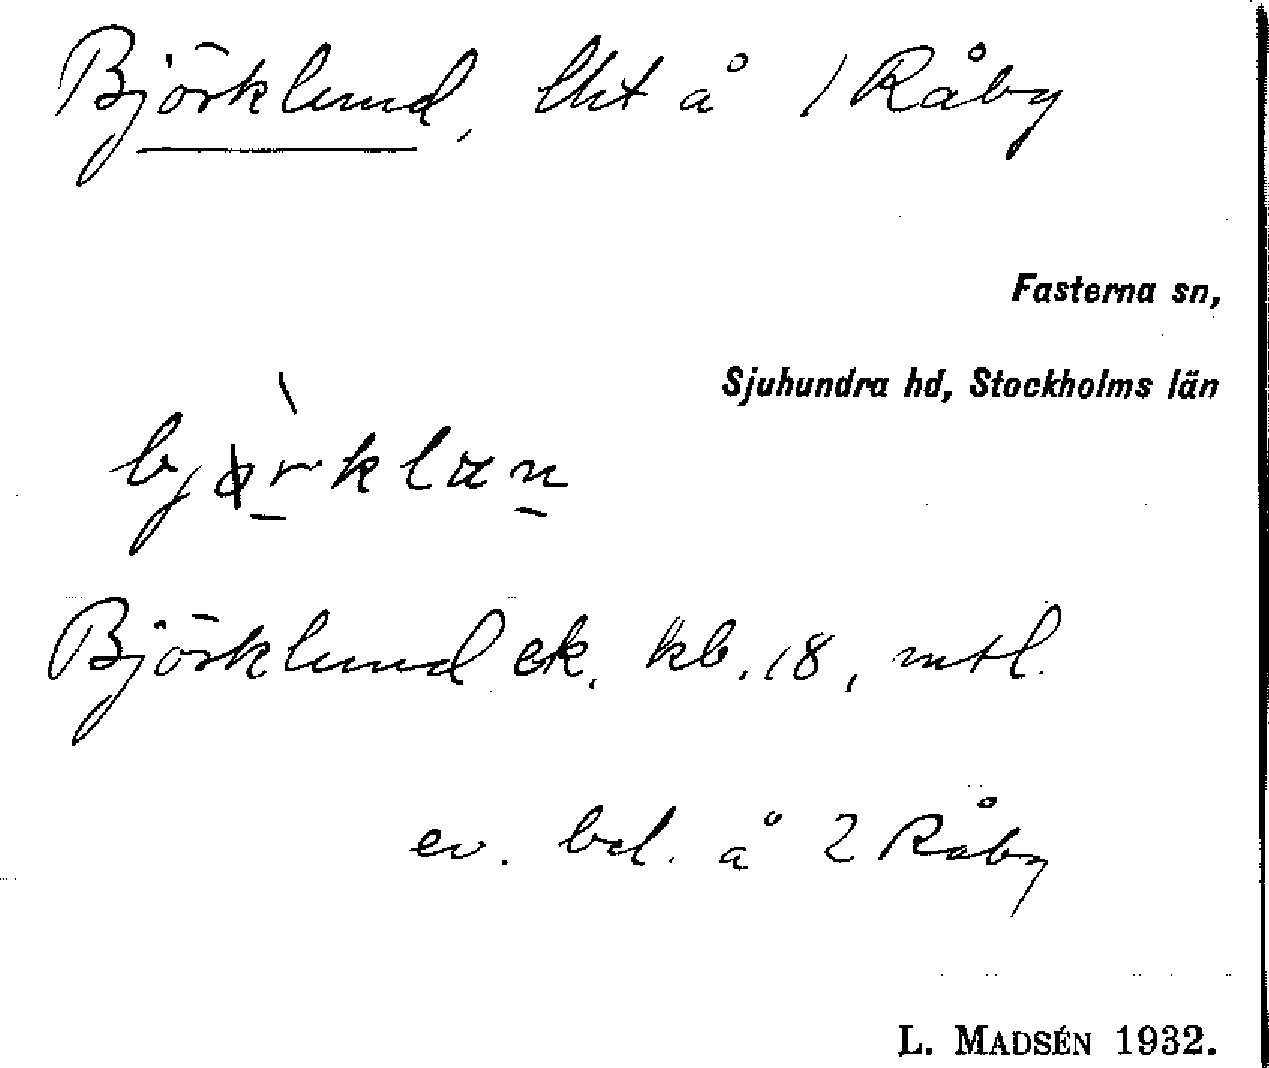 Björklund, lht å 1 Råby
Fasterna sn,
Sjuhundra hd, Stockholms län
Björklund ek. kb. 18, mtl.
ev. bel. å 2 Råby
L. MADSÉN 1932.